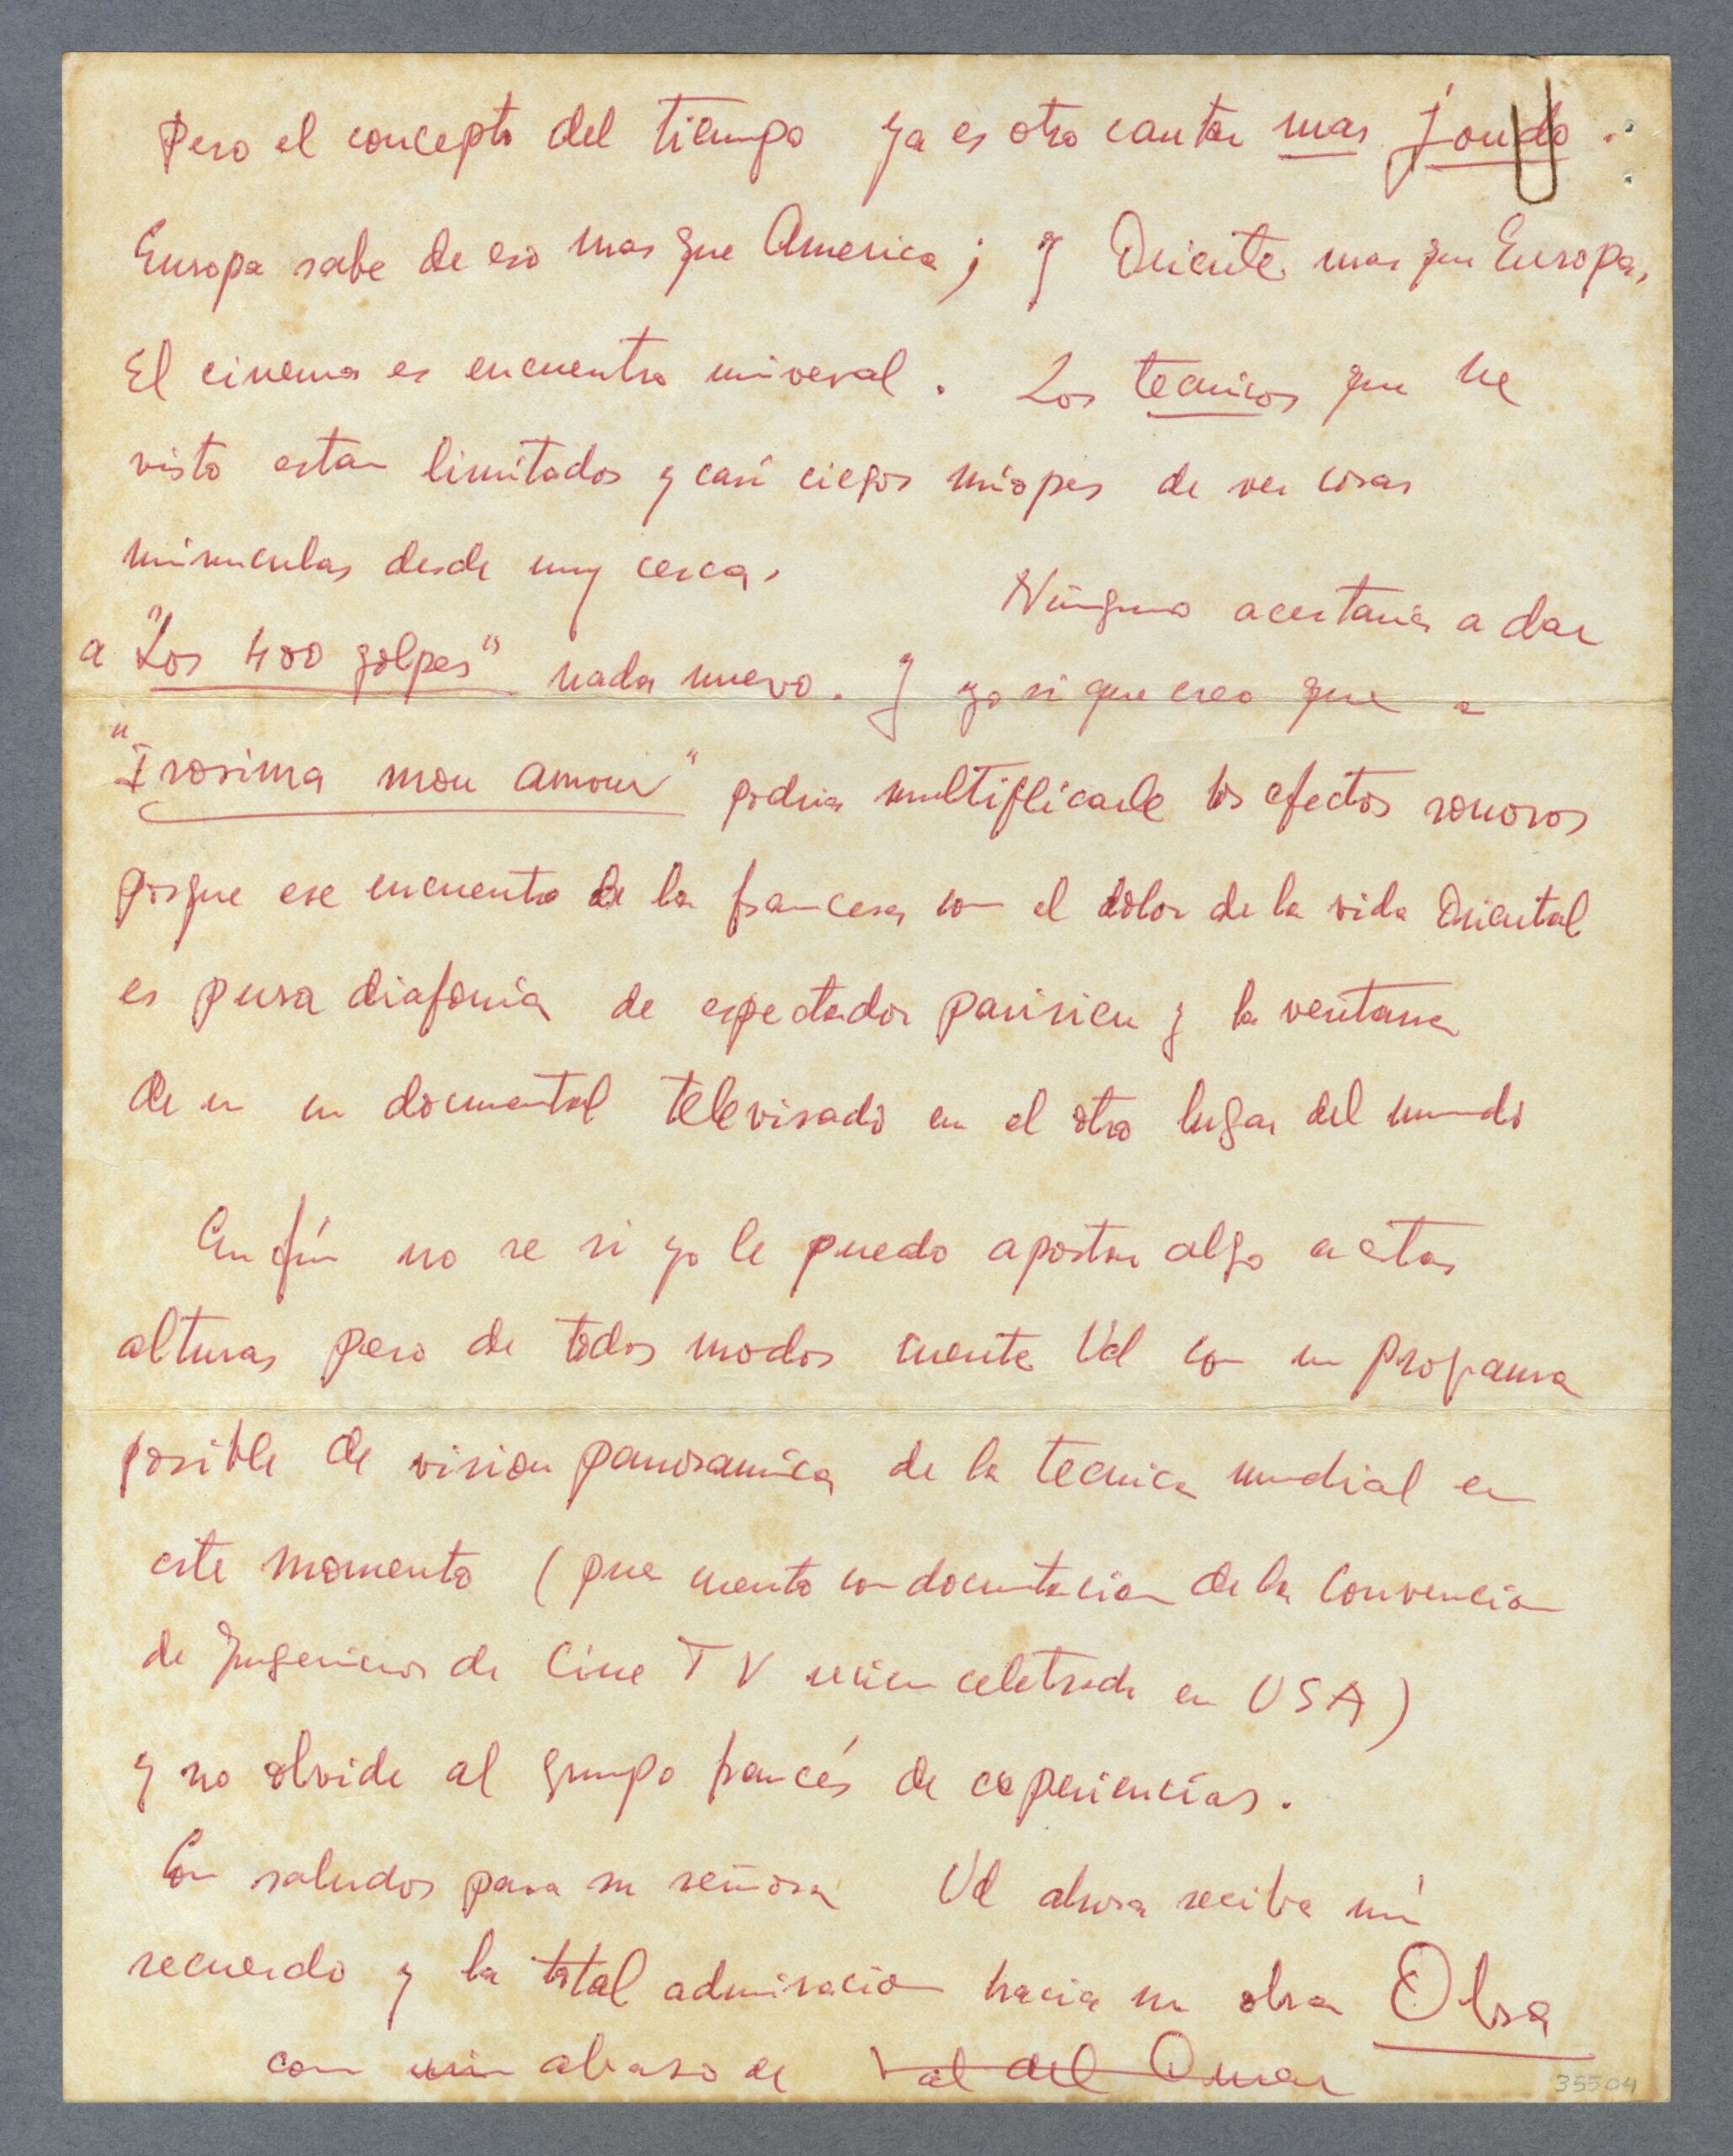 Pero el concepto del tiempo ya es otro cantar mas jondo.
Europa sabe de eso mas que America; y Oriente mas que Europa.
El cinema es encuentro univeral. Los tecnicos que he
visto estan limitados y casi ciegos miopes de ver cosas
minusculas desde muy cerca.
Ninguno acertaria a dar
a "Los 400 golpes" nada nuevo. Y yo si que creo que a
"Irosima mon amour" podria multiplicarle los efectos sonoros
porque ese encuentro de la francesa con el dolor de la vida Oriental
es pura diafonia de espectador parisien y la ventana
de un documental televisado en el otro lugar del mundo
En fin no se si yo le puedo aportar algo a estas
alturas pero de todos modos cuente Vd con un programa
posible de vision panoramica de la tecnica mundial en
este momento (pues cuento con documtacion de la Convencion
de Ingenieros de Cine TV recien celebrada en USA)
y no olvide al grupo francés de experiencias.
Con saludos para su señora Vd ahora reciba mi
recuerdo y la total admiracion hacia su obra Obra
con un abrazo de Val del Omar
35504